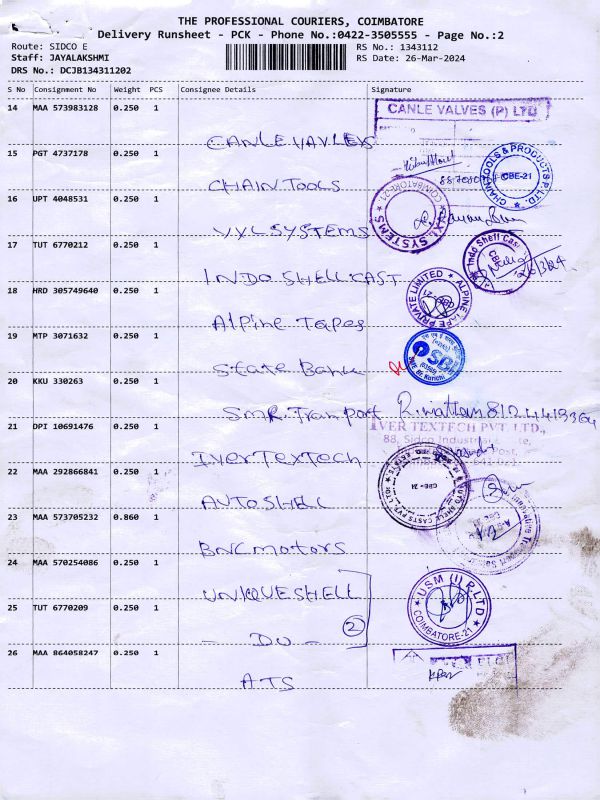 THE PROFESSIONAL COURIERS, COIMBATORE
Delivery Runsheet - PCK - Phone No.:0422-3505555 - Page No.:2
Route: SIDCO E
Staff: JAYALAKSHMI
DRS No.: DCJB134311202
RS No.: 1343112
RS Date: 26-Mar-2024
S No Consignment No Weight PCS Consignee Details Signature
14 MAA 573983128 0.250 1
CANLE VALVES (P) LTD
CANLE VAVLES
15 PGT 4737178 0.250 1
CHAINTOOLS & PRODUCTS P. LTD. CBE-21
CHAIN TOOLS
16 UPT 4048531 0.250 1
VXL SYSTEMS COIMBATORE-21
VXL SYSTEMS
17 TUT 6770212 0.250 1
Indo Shell Cast
26/3/24
INDO SHELL CAST
18 HRD 305749640 0.250 1
ALPINE TAPE PRIVATE LIMITED CBE 21
Alpine Tapes
19 MTP 3071632 0.250 1
SBI
State Bank
20 KKU 330263 0.250 1
SMR. Tranport
21 DPI 10691476 0.250 1
IVER TEXTECH PVT. LTD.,
88, Sidco Industrial
Post,
IverTexTech
22 MAA 292866841 0.250 1
AUTO SHELL CASTS PVT. LTD. CBE-21
AUTOSHELL
23 MAA 573705232 0.860 1
BNC motors
24 MAA 570254086 0.250 1
UNIQUE SHELL
25 TUT 6770209 0.250 1
USM (I) P. LTD COIMBATORE-21
- DO -
2
26 MAA 864058247 0.250 1
ATS